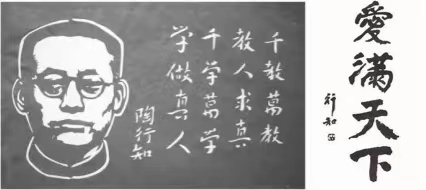 千教萬教
教人求真
千学萬学
学做真人
陶行知
愛滿天下
行知